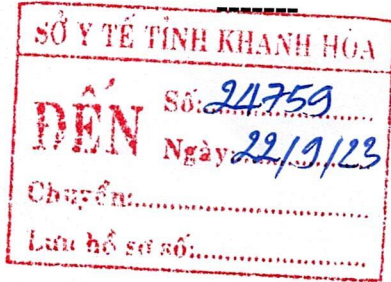 SỞ Y TẾ TỈNH KHANH HÒA
ĐẾN
Số: 24759
Ngày: 22/9/23
Chuyển:
Lưu hồ sơ số: